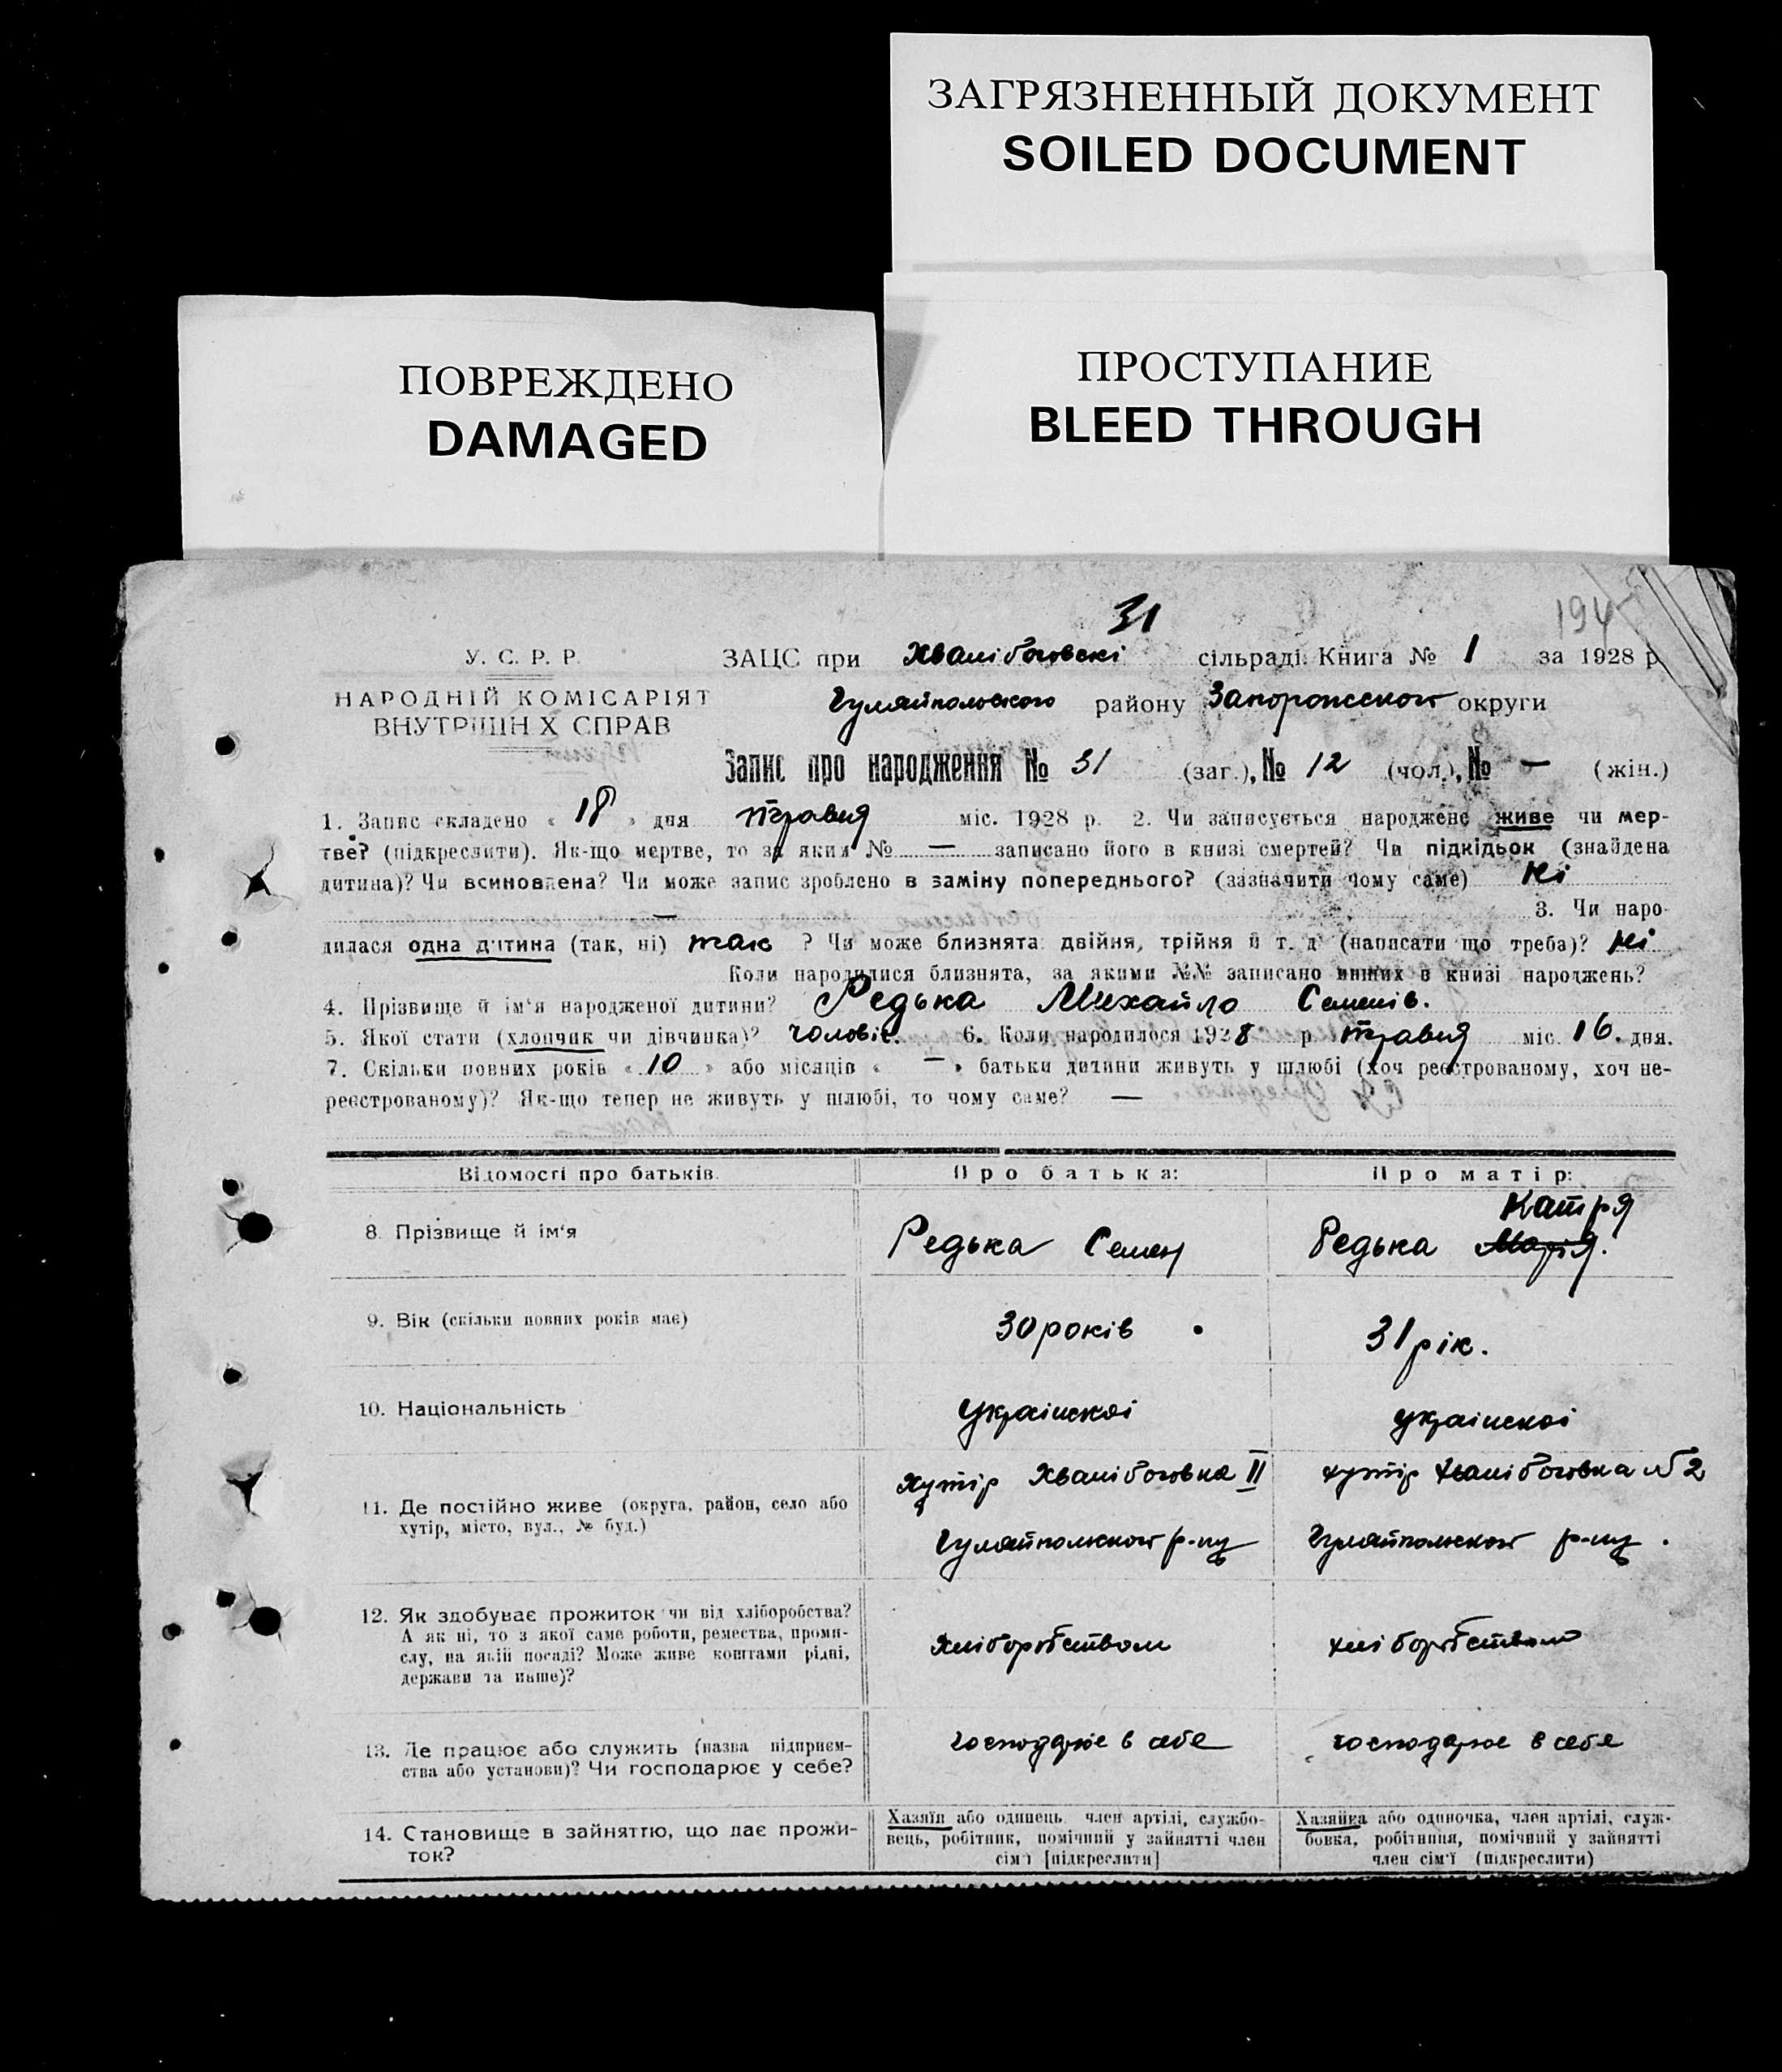 ЗАГРЯЗНЕННЫЙ ДОКУМЕНТ
SOILED DOCUMENT
ПОВРЕЖДЕНО
DAMAGED
ПРОСТУПАНИЕ
BLEED THROUGH
31
194
У. С. Р. Р.
НАРОДНІЙ КОМІСАРІЯТ
ВНУТРІШН Х СПРАВ
ЗАЦС при Хвалібоговскі сільраді. Книга № 1 за 1928 р
Гуляйпольского району Запорожского округи
Запис про народження № 31 (заг.), № 12 (чол.), № — (жін.)
1. Запис складено « 18 » дня травня міс. 1928 р. 2. Чи записується народжене живе чи мер-
тве? (підкреслити). Як-що мертве, то за яким № — записано його в книзі смертей? Чи підкідьок (знайдена
дитина)? Чи всиновлена? Чи може запис зроблено в заміну попереднього? (зазначити чому саме) Ні
— 3. Чи наро-
дилася одна дитина (так, ні) так ? Чи може близнята: двійня, трійня й т. д. (написати що треба)? Ні
Коли народилися близнята, за якими №№ записано инших в книзі народжень?
4. Прізвище й ім'я народженої дитини? Редька Михайло Семенів.
5. Якої стати (хлопчик чи дівчинка)? чоловіч. 6. Коли народилося 1928 р. травня міс. 16. дня.
7. Скільки повних років « 10 » або місяців « — » батьки дитини живуть у шлюбі (хоч реєстрованому, хоч не-
реєстрованому)? Як-що тепер не живуть у шлюбі, то чому саме? —
Відомості про батьків. Про батька: Про матір:
Катря
8. Прізвище й ім'я Редька Семен Редька Марія.
9. Вік (скільки повних років має) 30 років . 31 рік.
10. Національність українскої українскої
хутір Хвалібоговка II хутір Хвалібоговка № 2
11. Де постійно живе (округа, район, село або
хутір, місто, вул., № буд.)
Гуляйпольског р-ну Гуляйпольског р-ну .
12. Як здобуває прожиток чи від хліборобства?
А як ні, то з якої саме роботи, ремества, проми-
слу, на якій посаді? Може живе коштами рідні,
держави та инше)?
хліборобством хліборобством
13. Де працює або служить (назва підприєм-
ства або установи)? Чи господарює у себе?
господарює в себе господарює в себе
14. Становище в зайняттю, що дає прожи-
ток?
Хазяїн або одинець, член артілі, службо-
вець, робітник, помічний у зайнятті член
сім'ї [підкреслити]
Хазяйка або одиночка, член артілі, служ-
бовка, робітниця, помічний у зайнятті
член сім'ї (підкреслити)